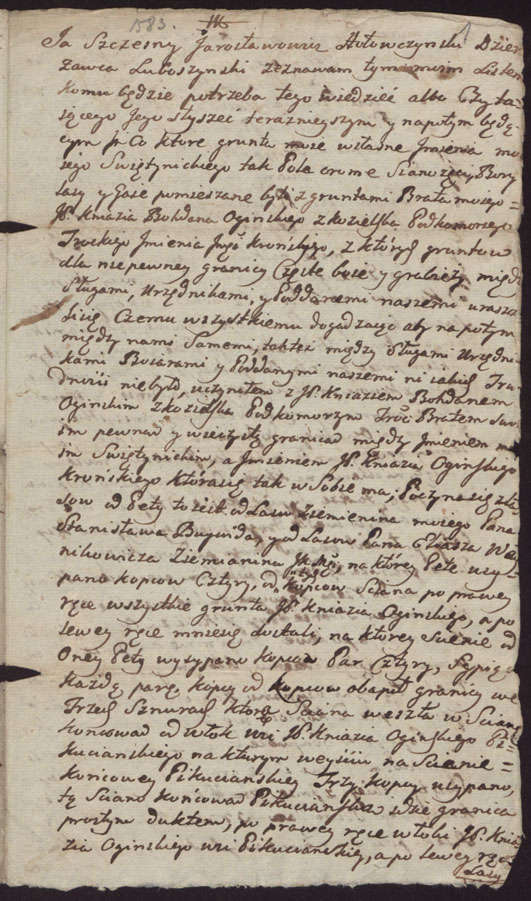 1583. 1
Ja Szczesny Jarosławowicz Hołowczynski Dzier
zawca Luboszynski zeznawam tym moim Listem
komu będzie potrzeba tego wiedzieć albo Czyta
iącego Jego słyszec terazniejszym y napotym będą
cym Jż Co ktore grunta moie własne Jmienia mo
iego Swiętynickiego tak Pola oromę Sianożęci Bory
Lasy y Gaie pomieszane były z gruntami Brata moiego =
JP. Kniazia Bohdana Oginskiego z Kozielska Podkomorzego
Trockiego Jmienia Jego Kronskiego, z ktorych gruntow
dla niepewney granicy Częste boie y grabieży między
Sługami, Urzędnikami, y Poddanemi naszemi wraza
li się Czemu wszystkiemu dogadzaiąc aby napotym
między nami Samemi, także między Sługami Urzędni
kami Boiarami y Poddanymi naszemi ni iakiey Tru
dnosci nie było, uczyniłem z JP. Kniaziem Bohdanem
Oginskim z Kozielska Podkomorzym Troc: Bratem Swo
im pewną y wieczystą granicę między Jmieniem mo
im Swiętynickim, a Jmieniem JP. Kniazia Oginskiego
Kronskiego która się tak w Sobie ma, Poczyna się
sow od Pety to iest od Lasu Ziemienina moiego Pana
Stanisława Bugwida, y od Lasow Pana Eliasza
nikowicza Ziemianina JK Mci, na ktorey Pete usy
pano kopcow Cztyry, od tych kopcow Sciana po prawey
ręce wszystkie grunta JP. Kniazia Oginskiego, a po
lewey ręce mnie się dostali, na ktorey Scienie od
Oney Pety wysypano kopcow Par Cztyry, Sypiąc
każdą parę kopcy od kopcow obapuł granicy we
Trzech Sznurach ktora Sciana weszła w Scianę
koncową od włok wsi JP. Kniazia Oginskiego Pi
kucianskiego na kturym weysciu na Scianie =
Koncowey Pikucianskiey Trzy kopcy usypano,
tą Scianą końcową Pikucianską idzie granica
prostym duktem, po prawey ręce włoki JP. Knia
zia Oginskiego wsi Pikucianskiey, a po lewey ręce
Lasy